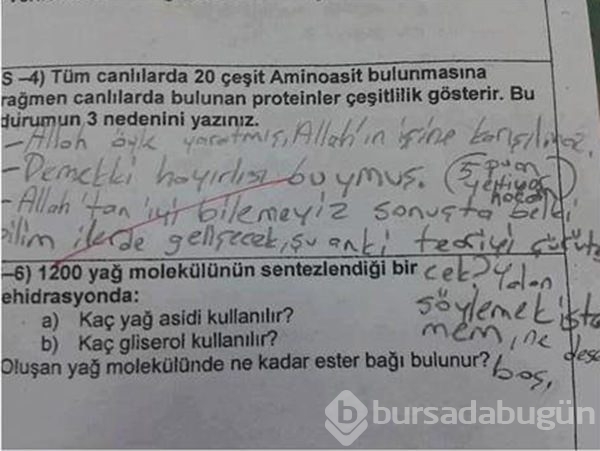 S –4) Tüm canlılarda 20 çeşit Aminoasit bulunmasına
rağmen canlılarda bulunan proteinler çeşitlilik gösterir. Bu
durumun 3 nedenini yazınız.
- Allah öyle yaratmış, Allah'ın işine karışılmaz.
- Demekki hayırlısı buymuş. (5 puan yetiyor hocam)
- Allah'tan iyi bilemeyiz sonuçta belki
bilim ilerde gelişecek, şu anki teoriyi çürüte
cek? Yalan
söylemek iste
mem, ne desem
boş.
–6) 1200 yağ molekülünün sentezlendiği bir
ehidrasyonda:
a) Kaç yağ asidi kullanılır?
b) Kaç gliserol kullanılır?
Oluşan yağ molekülünde ne kadar ester bağı bulunur?
b bursadabugün